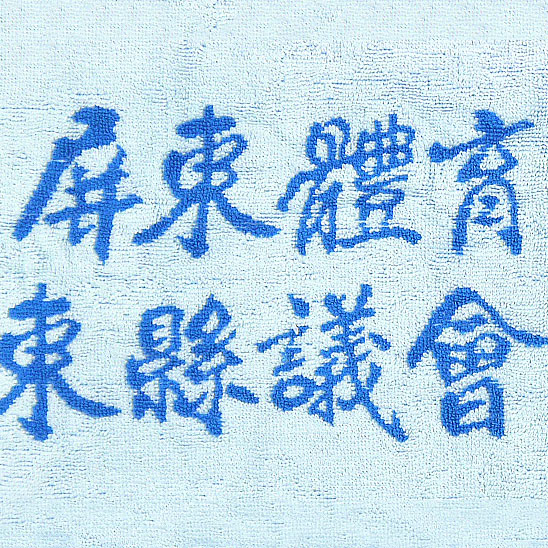 屏東體育
東縣議會